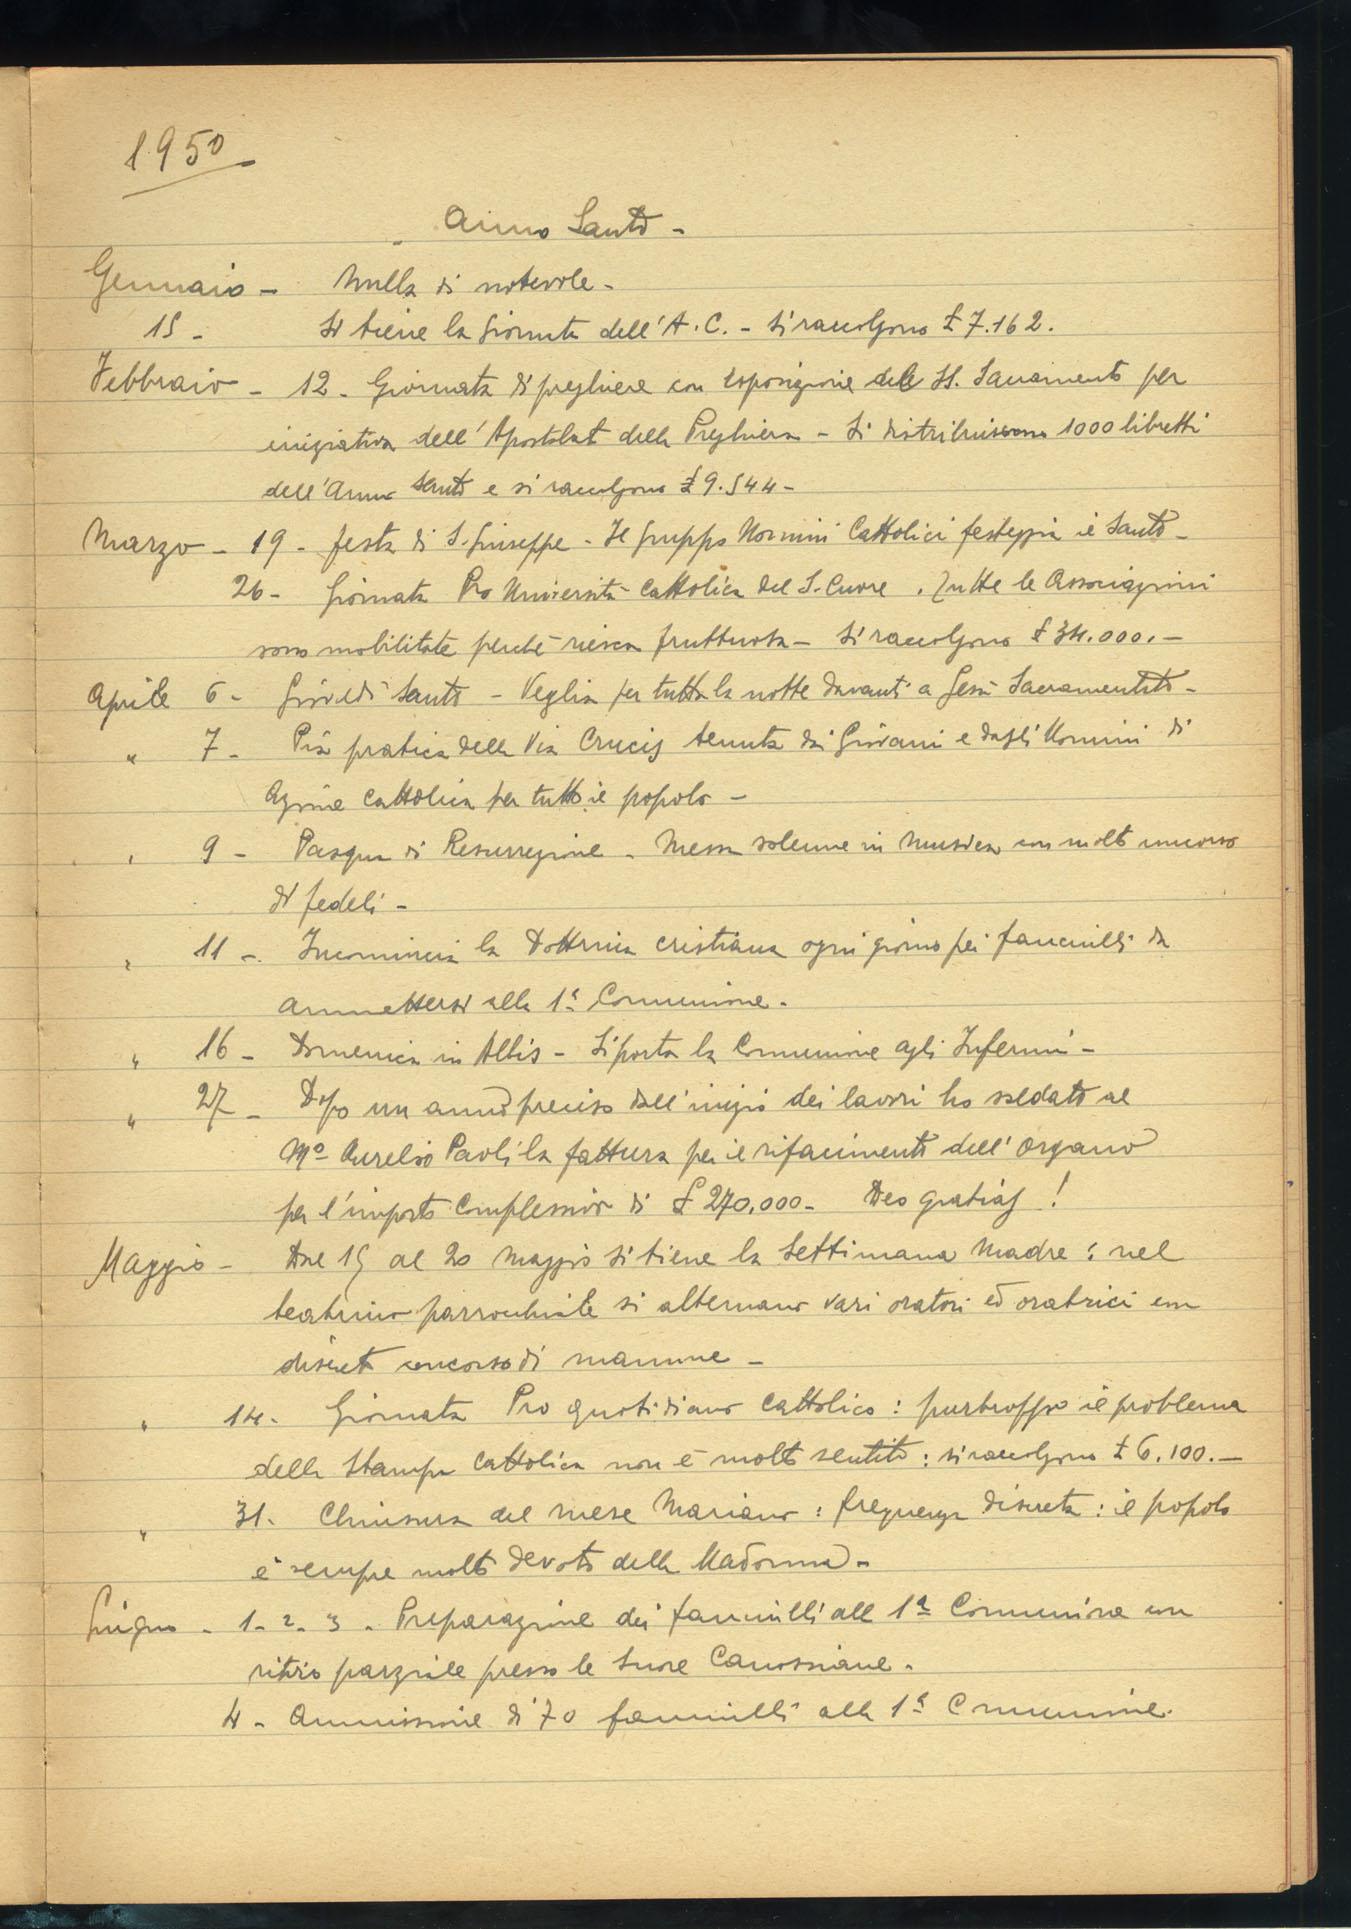 1950
Anno Santo -
Gennaio - Nulla di notevole -
15 - Si tiene la Giornata dell'A.C. - Si raccolgono £ 7.162.
Febbraio - 12 - Giornata di preghiere con esposizione del SS. Sacramento per
iniziativa dell'Apostolato della Preghiera - Si distribuiscono 1000 libretti
dell'Anno Santo e si raccolgono £ 9.544 -
Marzo - 19 - Festa di S. Giuseppe - Il Gruppo Uomini Cattolici festeggia il Santo -
26 - Giornata Pro Università Cattolica del S. Cuore. Tutte le Associazioni
sono mobilitate perchè riesca fruttuosa - Si raccolgono £ 34.000. -
Aprile 6 - Giovedì Santo - Veglia per tutta la notte davanti a Gesù Sacramentato -
" 7 - Pia pratica della Via Crucis tenuta dai Giovani e dagli Uomini di
Azione Cattolica per tutto il popolo -
" 9 - Pasqua di Resurrezione - Messa solenne in musica con molto concorso
di fedeli -
" 11 - Incomincia la Dottrina cristiana ogni giorno pei fanciulli da
ammettersi alla 1ª Comunione -
" 16 - Domenica in Albis - Si porta la Comunione agli Infermi -
" 27 - Dopo un anno preciso dall'inizio dei lavori ho saldato al
Mº Aurelio Paoli la fattura per il rifacimento dell'organo
per l'importo complessivo di £ 270.000 - Deo gratias!
Maggio - Dal 15 al 20 Maggio si tiene la Settimana Madre: nel
teatrino parrocchiale si alternano vari oratori ed oratrici con
discreto concorso di mamme -
" 14 - Giornata Pro quotidiano Cattolico: purtroppo il problema
della Stampa Cattolica non è molto sentito: si raccolgono £ 6.100. -
" 31 - Chiusura del mese Mariano: frequenza discreta: il popolo
è sempre molto devoto della Madonna -
Giugno - 1 - 2 - 3 - Preparazione dei fanciulli alla 1ª Comunione con
ritiro parziale presso le Suore Canossiane -
4 - Ammissione di 70 fanciulli alla 1ª Comunione.